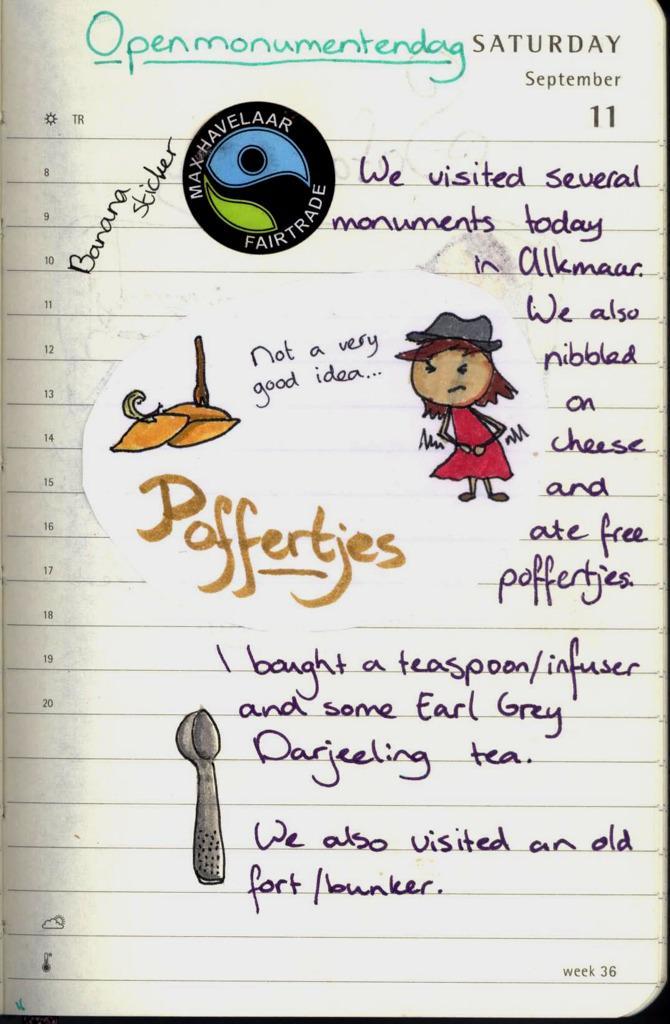 Openmonumentendag
SATURDAY
September
11
TR
MAX HAVELAAR
FAIRTRADE
Banana
sticker
We visited several
monuments today
in Alkmaar.
We also
nibbled
on
cheese
and
ate free
poffertjes.
Not a very
good idea...
Poffertjes
I bought a teaspoon/infuser
and some Earl Grey
Darjeeling tea.
We also visited an old
fort/bunker.
8
9
10
11
12
13
14
15
16
17
18
19
20
week 36